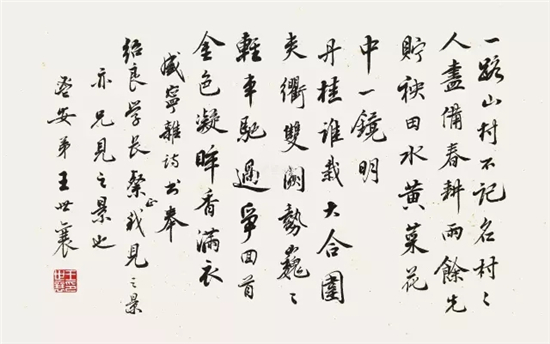 一路山村不記名村〻
人盡備春耕雨餘先
貯秧田水黃菜花
中一鏡明
丹桂誰栽大合圍
夾衢雙闕勢巍〻
輕車馳過爭回首
金色凝眸香滿衣
咸寧雜詩书奉
紹良学長粲正我見之景
亦兄見之景也
鬯安弟王世襄